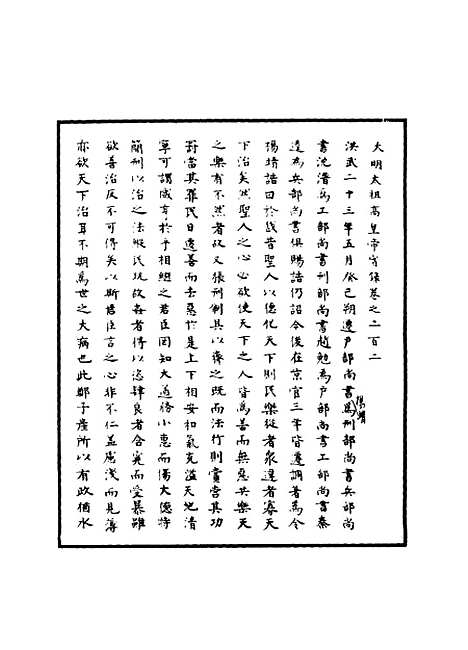 大明太祖高皇帝實錄卷之二百二
洪武二十三年五月癸巳朔遷戶部尚書楊靖爲刑部尚書兵部尚
書沈溍爲工部尚書刑部尚書趙勉爲戶部尚書工部尚書秦
逵爲兵部尚書俱賜誥仍詔今後在京官三年皆遷調著爲令
楊靖誥曰於戲昔聖人以德化天下則民樂從者衆違者寡天
下治矣然聖人之心必欲使天下之人皆爲善而無惡共樂天
之樂有不然者故又張刑制具以齊之旣而法行則賞當其功
罰當其罪民日遷善而去惡於是上下相安和氣充溢天地清
寧可謂咸亨於乎相繼之君臣罔知大道務小惠而傷大德特
簡刑以治之法縱民玩故姦者得以恣肆良者含寃而受暴雖
欲善治反不可得矣以斯君臣言之心非不仁盖慮淺而見薄
亦欲天下治耳不期爲世之大病也此鄭子產所以有政猶水